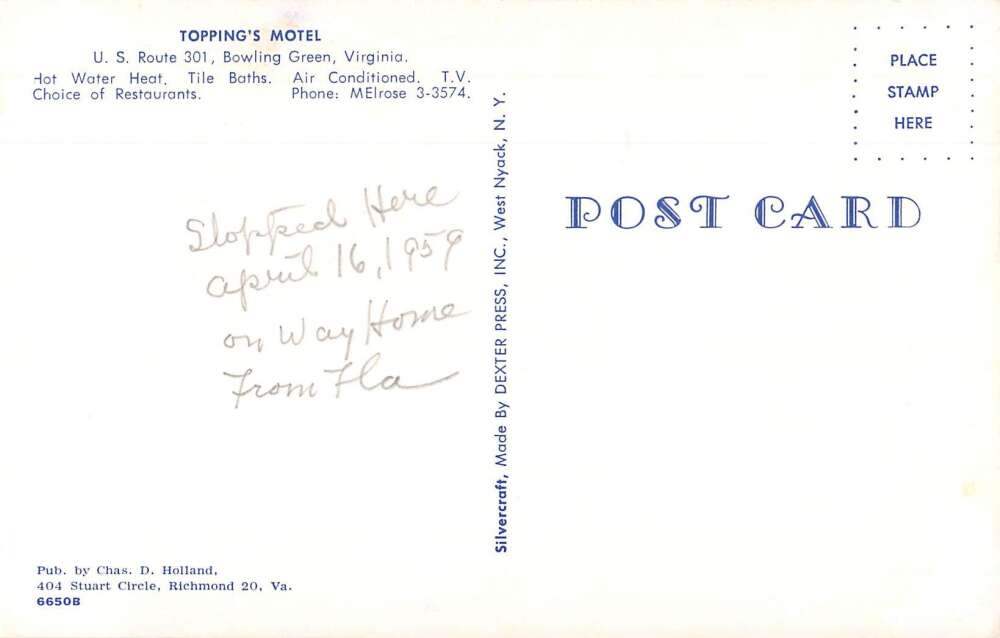 TOPPING'S MOTEL
U. S. Route 301, Bowling Green, Virginia.
Hot Water Heat. Tile Baths. Air Conditioned. T.V.
Choice of Restaurants. Phone: MElrose 3-3574.
Stopped Here
april 16, 1959
on Way Home
From Fla
Pub. by Chas. D. Holland,
404 Stuart Circle, Richmond 20, Va.
6650B
Silvercraft, Made By DEXTER PRESS, INC., West Nyack, N. Y.
PLACE
STAMP
HERE
POST CARD